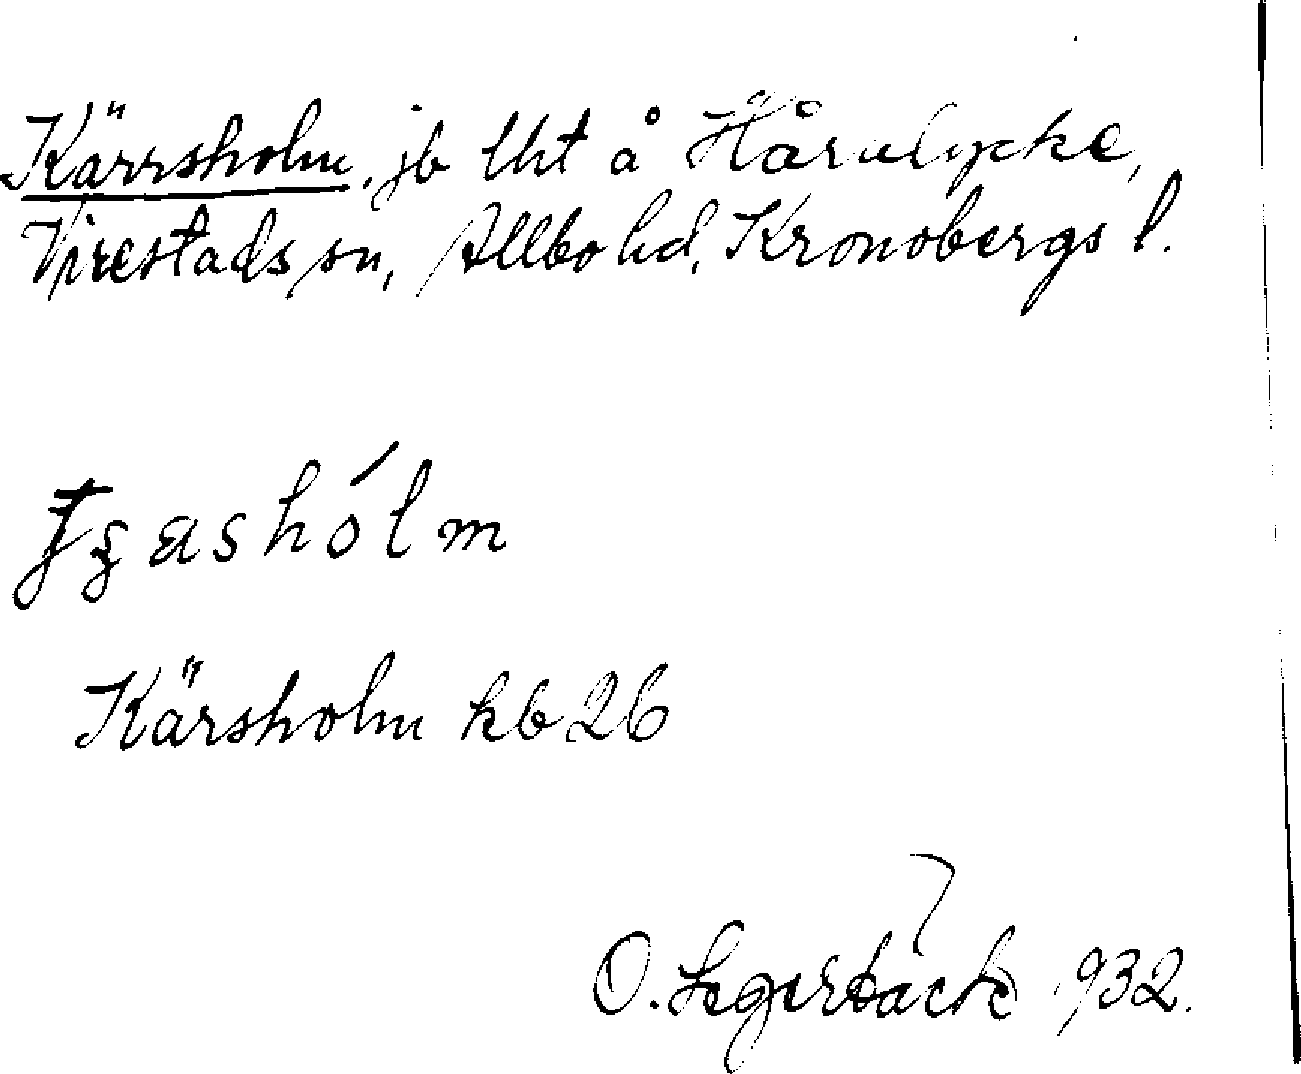 Kärrsholm, jb lht å Hårnlycke,
Virestads sn, Allbo hd, Kronobergs l.
ashólm
Kärsholm kb 26
O. Segerbäck 932.